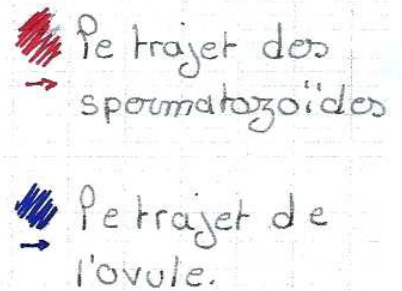 le trajet des
spermatozoïdes
le trajet de
l'ovule.